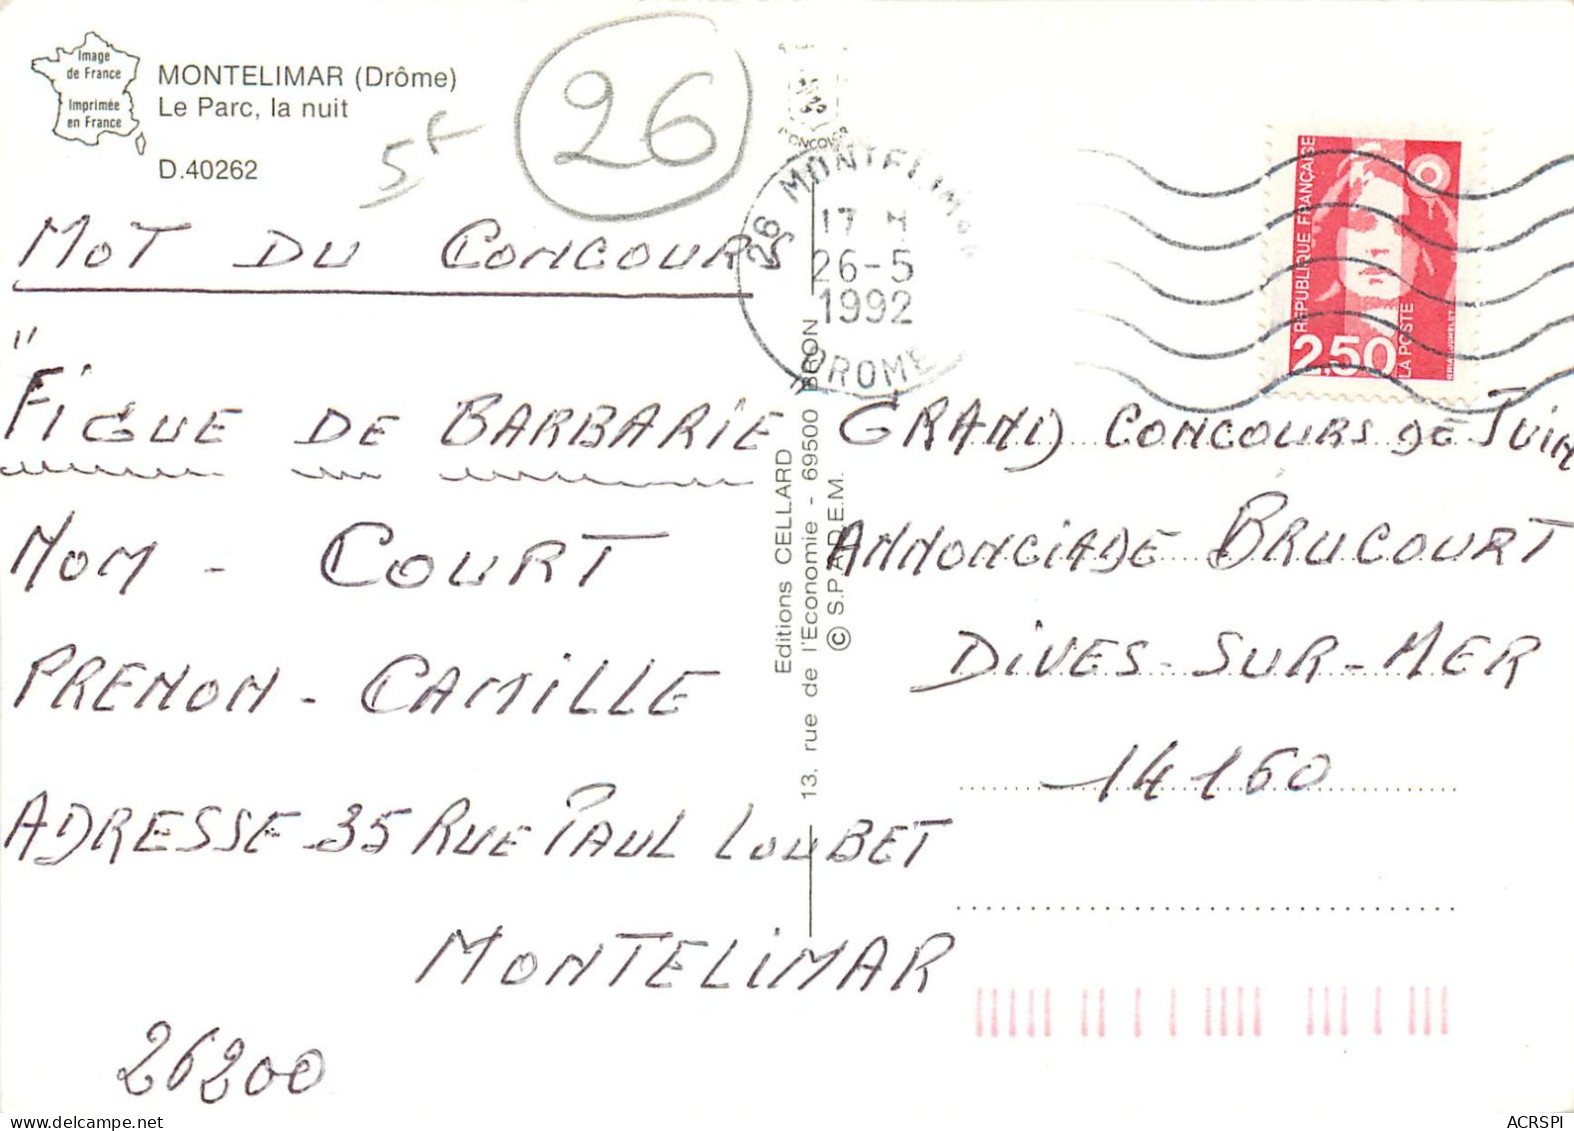 Image
de France
Imprimée
en France
MONTELIMAR (Drôme)
Le Parc, la nuit
D.40262
5f
26
MOT DU CONCOURS
"FIGUE DE BARBARIE"
NOM - COURT
PRENON - CAMILLE
ADRESSE - 35 RUE PAUL LOUBET
MONTELIMAR
26200
26 MONTELIMAR
17 H
26-5
1992
DROME
Editions CELLARD
13. rue de l'Economie - 69500 BRON
© S.P.A.D.E.M.
REPUBLIQUE FRANÇAISE
2,50
LA POSTE
GRAND CONCOURS DE JUIN
ANNONCIADE BRUCOURT
DIVES-SUR-MER
14160
ACRSPI